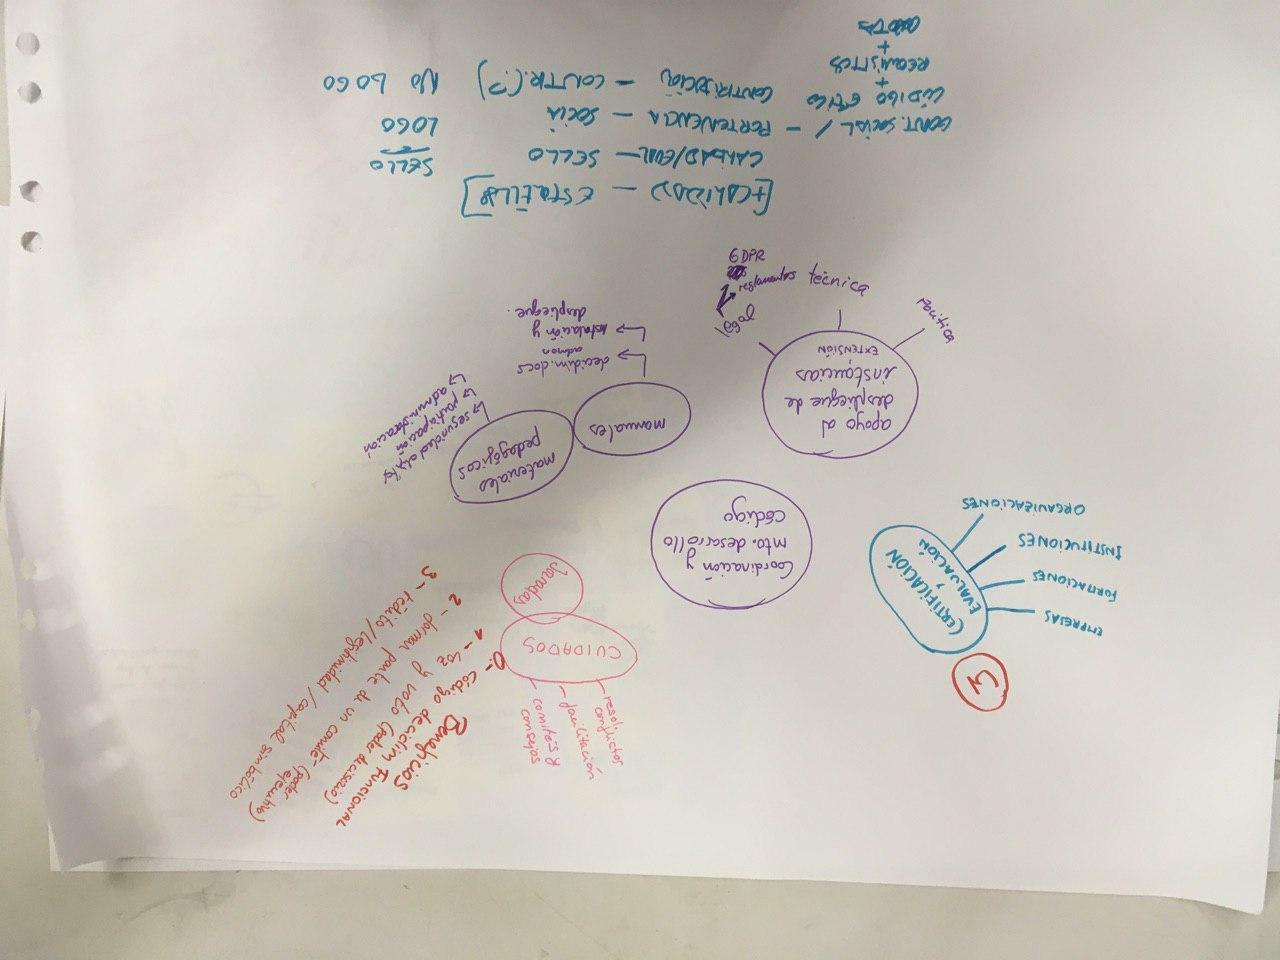 EMPRESAS
FORMACIONES
INSTITUCIONES
ORGANIZACIONES
3
CERTIFICACIÓN
EVALUACIÓN
CUIDADOS
Jaradas
resol. conflictos
facilitación
comités y
consejos
Beneficios
0- código decidim FUNCIONAL
1- voz y voto (poder decisorio)
2- formar parte de un comité (poder ejecutivo)
3- rédito/legitimidad/capital simbólico
Coordinación y
mto. desarrollo
código
apoyo al
despliegue de
instancias
EXTENSIÓN
política
técnica
legal
reglamentos
GDPR
manuales
decidim.docs
admon
instalación y
despliegue.
materiales
pedagógicos
↳ seguridad
↳ participación
↳ administración
[+CALIDAD — ESTRELLAS]
CALIDAD/EVAL — SELLO
SELLO
CONT. SOCIAL / — PERTENENCIA — SOCIA
LOGO
CÓDIGO ÉTICO
CONTRIBUCIÓN — CONTR.(?)
NO LOGO
+
REQUISITOS
+
CUOTA